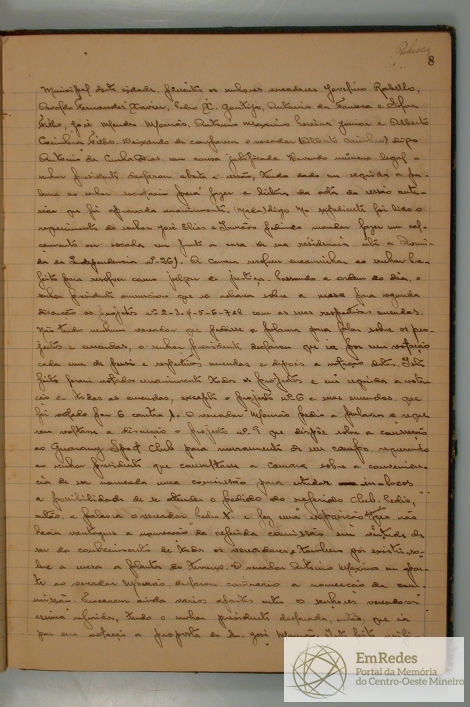 8
Municipal desta cidade. Presentes os senhores vereadores Josefino Rabello,
Arnolfo Fernandes Xavier, Pedro X. Gontijo, Antonio da Fonseca e Silva
Filho, José Mendes Mourão, Antonio Maximo Pereira Junior e Alberto
Coimbra Filho. Deixando de comparecer o vereador (Alberto Coimbra) digo
Antonio da Cunha Dias com causa justificada. Havendo numero legal o
senhor Presidente declarou aberta a sessão, tendo dado em seguida a pa-
lavra ao senhor secretario para fazer a leitura da acta da sessão ante-
rior que foi aprovada unanimemente. digo No expediente foi lido o
requerimento do senhor José Elias e Irmãos pedindo mandar fazer um cal-
çamento ou escada em frente a casa de sua residencia sita a Aveni-
da da Independencia nº 26). A Camara resolveu encaminhar ao senhor Pre-
feito para resolver como julgar de justiça. Passando a ordem do dia, o
senhor presidente anunciou que se achava sobre a mesa para segunda
discussão os projetos nº 2-3-4-5-6-7 e 8 com as suas respectivas emendas.
Não tendo nenhum vereador que pedisse a palavra para falar sobre os pro-
jectos e emendas, o senhor presidente declarou que ia por em votação
cada um de per si e respectivas emendas e depois a votação destas. Isto
feito foram votados unanimemente todos os projectos e em seguida a vota-
ção de todas as emendas, excepto o projecto nº 6 e suas emendas, que
foi votado por 6 contra 1. O vereador Mourão pediu a palavra e reque-
reu voltasse a discussão o projecto nº 9 que dispõe sobre a concessão
ao Guarany Sport Club para nivelamento de um campo, requerendo
ao senhor presidente que consultasse a Camara sobre a convenien-
cia de ser nomeada uma comissão para estudar in-locos
a possibilidade de se atender o pedido do referido Club. Pediu,
então, a palavra o vereador Pedro X. e fez uma exposição que não
havia vantagem a nomeação da referida comissão em virtude de
ser do conhecimento de todos os vereadores e tambem por existir so-
bre a mesa a planta do terreno. O vereador Antonio Maximo em apar-
te ao vereador Mourão declarou contrario a nomeação da co-
missão. Trocaram ainda varios apartes entre os senhores vereadores
acima referidos, tendo o senhor presidente declarado, então, que ia
por em votação a proposta do Sr. José Mourão. Isto feito
EmRedes
Portal da Memória
do Centro-Oeste Mineiro